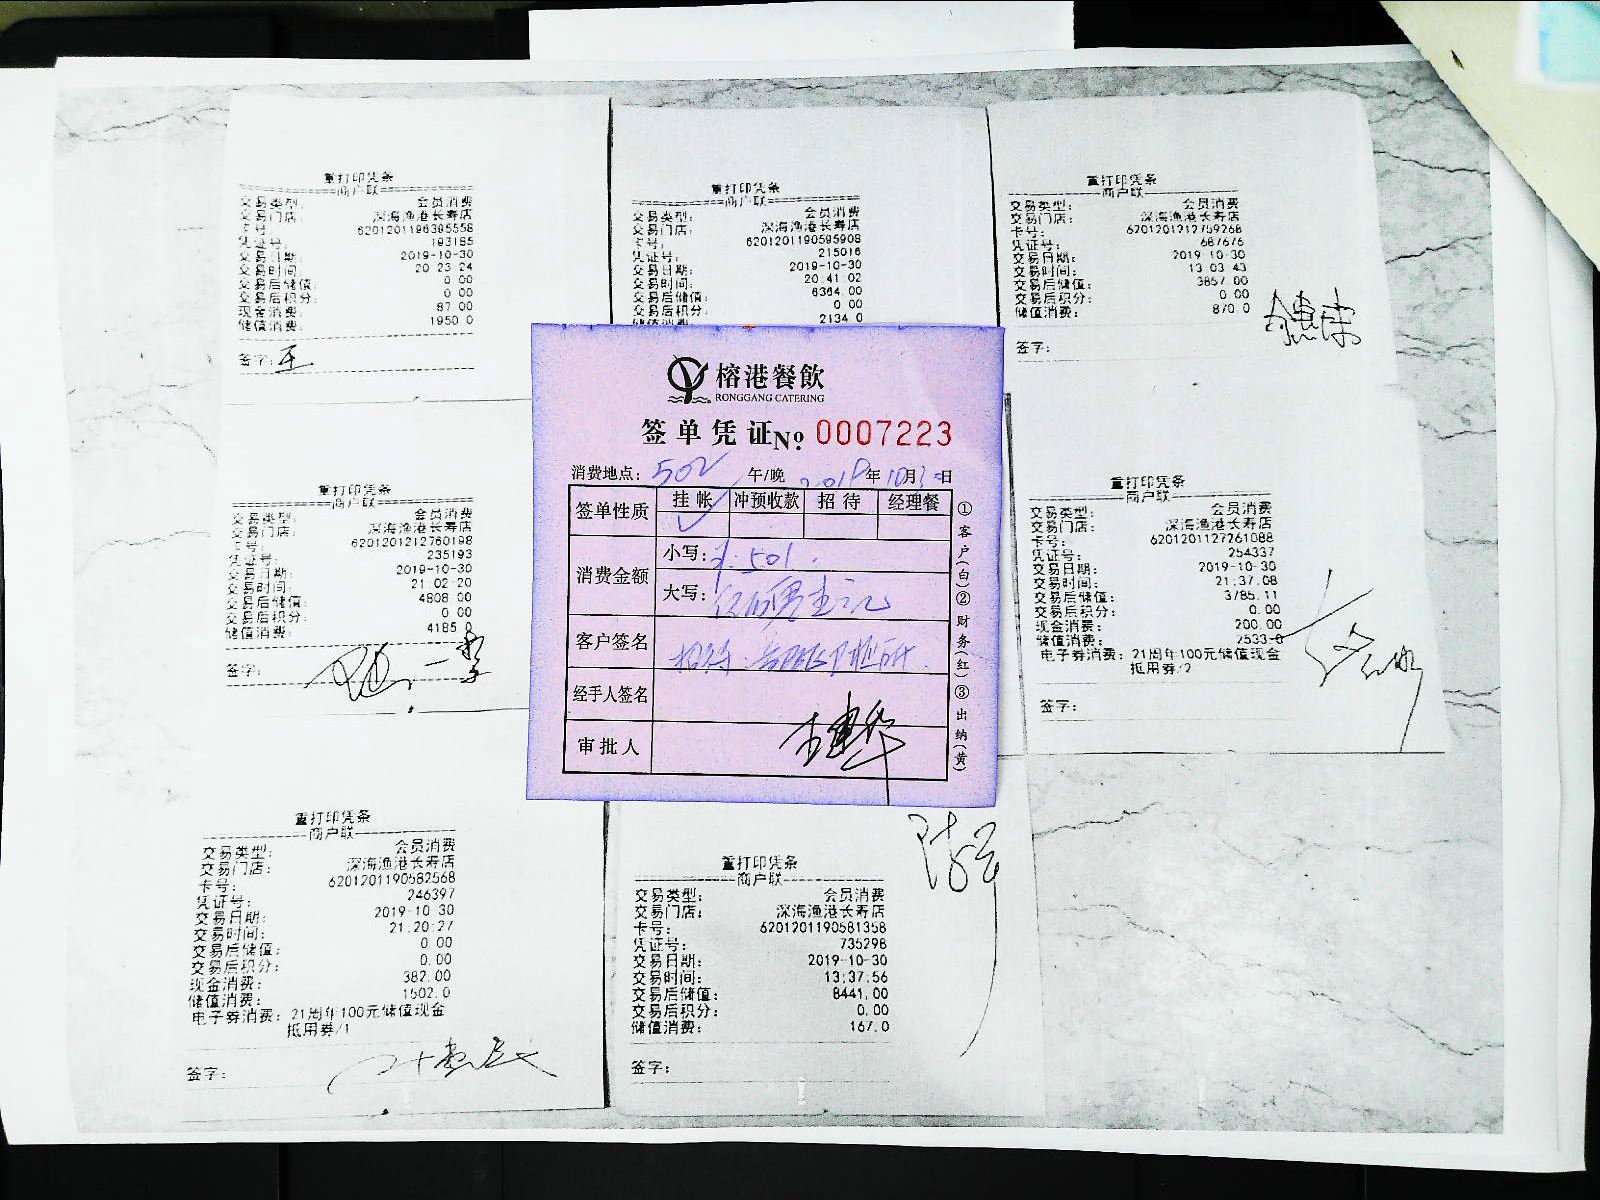 重打印凭条
商户联
交易类型: 会员消费
交易门店: 深海渔港长寿店
卡号: 6201201196395558
凭证号: 193185
交易日期: 2019-10-30
交易时间: 20 23 24
交易后储值: 0 00
交易后积分: 0 00
现金消费: 87 00
储值消费: 1950 0
签字: 王
重打印凭条
商户联
交易类型: 会员消费
交易门店: 深海渔港长寿店
卡号: 6201201190595908
凭证号: 215016
交易日期: 2019-10-30
交易时间: 20 41 02
交易后储值: 6364.00
交易后积分: 0 00
储值消费 2134 0
重打印凭条
商户联
交易类型: 会员消费
交易门店: 深海渔港长寿店
卡号: 6201201212759268
凭证号: 687676
交易日期: 2019 10-30
交易时间: 13 03 43
交易后储值: 3857 00
交易后积分: 0 00
储值消费: 870 0
签字:
榕港餐飲
RONGGANG CATERING
签单凭证No 0007223
消费地点: 502 午/晚 年10月 日
签单性质 挂帐 冲预收款 招待 经理餐
消费金额 小写: 501.
大写:
客户签名
经手人签名
审批人
①客户(白)②财务(红)③出纳(黄)
重打印凭条
商户联
交易类型: 会员消费
交易门店: 深海渔港长寿店
卡号: 6201201212760198
凭证号: 235193
交易日期: 2019-10-30
交易时间: 21 02 20
交易后储值: 4808 00
交易后积分: 0 00
储值消费: 4185 0
签字:
重打印凭条
商户联
交易类型: 会员消费
交易门店: 深海渔港长寿店
卡号: 6201201127261088
凭证号: 254337
交易日期: 2019-10-30
交易时间: 21:37:08
交易后储值: 3785.11
交易后积分: 0.00
现金消费: 200.00
储值消费: 2533.0
电子券消费: 21周年100元储值现金
抵用券/2
签字:
重打印凭条
商户联
交易类型: 会员消费
交易门店: 深海渔港长寿店
卡号: 6201201190582568
凭证号: 246397
交易日期: 2019-10 30
交易时间: 21:20:27
交易后储值: 0 00
交易后积分: 0.00
现金消费: 382.00
储值消费: 1502.0
电子券消费: 21周年100元储值现金
抵用券/1
签字:
重打印凭条
商户联
交易类型: 会员消费
交易门店: 深海渔港长寿店
卡号: 6201201190581358
凭证号: 735298
交易日期: 2019-10-30
交易时间: 13:37:56
交易后储值: 8441.00
交易后积分: 0.00
储值消费: 167.0
签字: